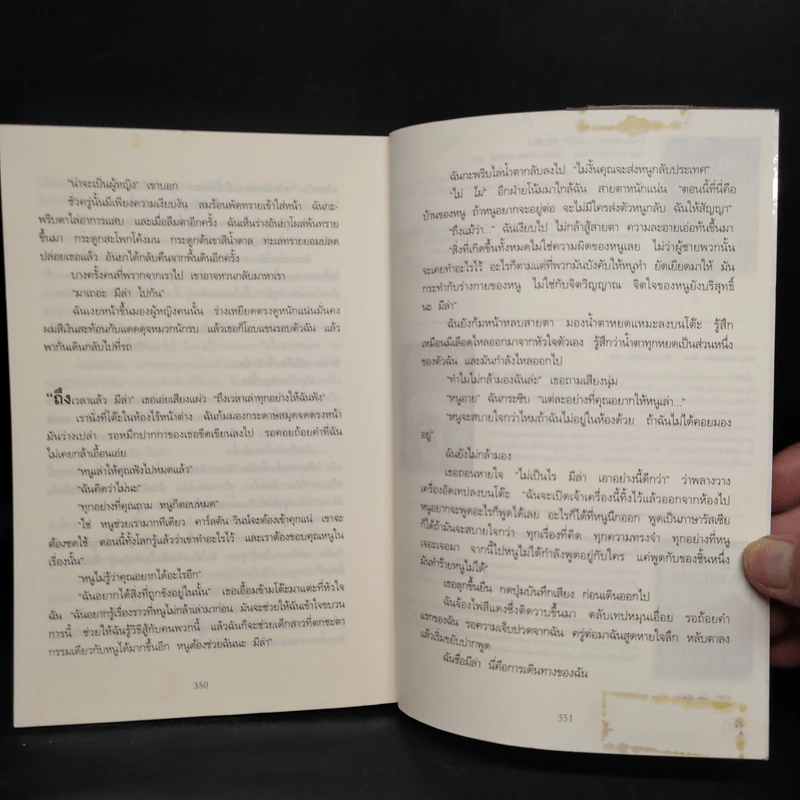 "น่าจะเป็นผู้หญิง" เขาบอก
ชั่วครู่นั้นมีเพียงความเงียบงัน ลมร้อนพัดทรายเข้าใส่หน้า ฉันกะ-
พริบตาไล่อาการแสบ และเมื่อลืมตาอีกครั้ง ฉันเห็นร่างอันยาโผล่พ้นทราย
ขึ้นมา กระดูกสะโพกโค้งมน กระดูกต้นขาสีน้ำตาล ทะเลทรายยอมปลด
ปล่อยเธอแล้ว อันยาได้กลับคืนจากพื้นดินอีกครั้ง
บางครั้งคนที่พรากจากเราไป เขาอาจหวนกลับมาหาเรา
"มาเถอะ มีล่า ไปกัน"
ฉันเงยหน้าขึ้นมองผู้หญิงคนนั้น ร่างเหยียดตรงดูหนักแน่นมั่นคง
ผมสีเงินสะท้อนกับแดดดุจหมวกนักรบ แล้วเธอก็โอบแขนรอบตัวฉัน แล้ว
พากันเดินกลับไปที่รถ
"ถึงเวลาแล้ว มีล่า" เธอเอ่ยเสียงแผ่ว "ถึงเวลาเล่าทุกอย่างให้ฉันฟัง"
เรานั่งที่โต๊ะในห้องไร้หน้าต่าง ฉันก้มมองกระดาษสมุดจดตรงหน้า
มันว่างเปล่า รอหมึกปากกาของเธอขีดเขียนลงไป รอคอยถ้อยคำที่ฉัน
ไม่เคยกล้าเอื้อนเอ่ย
"หนูเล่าให้คุณฟังไปหมดแล้ว"
"ฉันคิดว่าไม่นะ"
"ทุกอย่างที่คุณถาม หนูก็ตอบหมด"
"ใช่ หนูช่วยเรามากทีเดียว คาร์ลตัน วินน์จะต้องเข้าคุกแน่ เขาจะ
ต้องชดใช้ ตอนนี้ทั้งโลกรู้แล้วว่าเขาทำอะไรไว้ และเราต้องขอบคุณหนูใน
เรื่องนั้น"
"หนูไม่รู้ว่าคุณอยากได้อะไรอีก"
"ฉันอยากได้สิ่งที่ถูกขังอยู่ในนั้น" เธอเอื้อมข้ามโต๊ะมาแตะที่หัวใจ
ฉัน "ฉันอยากรู้เรื่องราวที่หนูไม่กล้าเล่ามาก่อน มันจะช่วยให้ฉันเข้าใจขบวน
การนี้ ช่วยให้ฉันรู้วิธีสู้กับคนพวกนี้ แล้วฉันก็จะช่วยเด็กสาวที่ตกชะตา
กรรมเดียวกับหนูได้มากขึ้นอีก หนูต้องช่วยฉันนะ มีล่า"
350
ฉันกะพริบไล่น้ำตากลับลงไป "ไม่งั้นคุณจะส่งหนูกลับประเทศ"
"ไม่ ไม่" อีกฝ่ายโน้มมาใกล้ฉัน สายตาหนักแน่น "ตอนนี้ที่นี่คือ
บ้านของหนู ถ้าหนูอยากจะอยู่ต่อ จะไม่มีใครส่งตัวหนูกลับ ฉันให้สัญญา"
"ถึงแม้ว่า..." ฉันเงียบไป ไม่กล้าสู้สายตา ความละอายเอ่อท้นขึ้นมา
"สิ่งที่เกิดขึ้นทั้งหมดไม่ใช่ความผิดของหนูเลย ไม่ว่าผู้ชายพวกนั้น
จะเคยทำอะไรไว้ อะไรก็ตามแต่ที่พวกมันบังคับให้หนูทำ ยัดเยียดมาให้ มัน
กระทำกับร่างกายของหนู ไม่ใช่กับจิตวิญญาณ จิตใจของหนูยังบริสุทธิ์
นะ มีล่า"
ฉันยังก้มหน้าหลบสายตา มองน้ำตาหยดแหมะลงบนโต๊ะ รู้สึก
เหมือนมีเลือดไหลออกมาจากหัวใจตัวเอง รู้สึกว่าน้ำตาทุกหยดเป็นส่วนหนึ่ง
ของตัวฉัน และมันกำลังไหลออกไป
"ทำไมไม่กล้ามองฉันล่ะ" เธอถามเสียงนุ่ม
"หนูอาย" ฉันกระซิบ "แต่ละอย่างที่คุณอยากให้หนูเล่า..."
"หนูจะสบายใจกว่าไหมถ้าฉันไม่อยู่ในห้องด้วย ถ้าฉันไม่ได้คอยมอง
อยู่"
ฉันยังไม่กล้ามอง
เธอถอนหายใจ "ไม่เป็นไร มีล่า เอาอย่างนี้ดีกว่า" ว่าพลางวาง
เครื่องอัดเทปลงบนโต๊ะ "ฉันจะเปิดเจ้าเครื่องนี้ทิ้งไว้แล้วออกจากห้องไป
หนูอยากจะพูดอะไรก็พูดได้เลย อะไรก็ได้ที่หนูนึกออก พูดเป็นภาษารัสเซีย
ก็ได้ถ้ามันจะสบายใจกว่า ทุกเรื่องที่คิด ทุกความทรงจำ ทุกอย่างที่หนู
เจอะเจอมา จากนี้ไปหนูไม่ได้กำลังพูดอยู่กับใคร แค่พูดกับของชิ้นหนึ่ง
มันทำร้ายหนูไม่ได้"
เธอลุกขึ้นยืน กดปุ่มบันทึกเสียง ก่อนเดินออกไป
ฉันจ้องไฟสีแดงซึ่งติดวาบขึ้นมา ตลับเทปหมุนเอื่อย รอถ้อยคำ
แรกของฉัน รอความเจ็บปวดจากฉัน ครู่ต่อมาฉันสูดหายใจลึก หลับตาลง
แล้วเริ่มขยับปากพูด
ฉันชื่อมีล่า นี่คือการเดินทางของฉัน
351